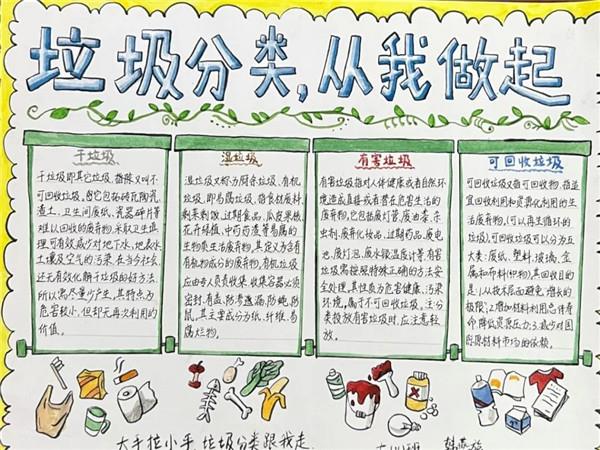 垃圾分类,从我做起
干垃圾
干垃圾即其它垃圾,指除又叫不
可回收垃圾。它包砖瓦陶瓷,
渣土,卫生间废纸,瓷器碎片等
难以回收的废弃物,采取卫生填
埋可有效减少对地下水,地表水
土壤及空气的污染,在当今社会,
还无有效化解干垃圾的好方法,
所以需尽量少产生,其特点为
危害较小,但却无再次利用的
价值。
湿垃圾
湿垃圾又称为厨余垃圾、有机
垃圾,即易腐垃圾,指食材废料
剩菜剩饭,过期食品,瓜皮果核,
花卉绿植,中药药渣等易腐的
生物质生活废弃物,其定义为含有
有机物成分的废弃物,有机垃圾
应由专人负责收集,收集容器必须
密封,有盖,防渗透漏,防蝇,防
鼠,其主要成分为纸、纤维,易
腐烂物。
有害垃圾
有害垃圾指对人体健康或者自然环
境造成直接或者潜在危害生活的
废弃物,它包括废灯管,废油漆,杀
虫剂,废弃化妆品,过期药品,废电
池,废灯泡,废水银温度计等,有害
垃圾需按照特殊正确的方法安
全处理,其性质为危害健康、污染
环境,属于不可回收垃圾,主:分
类投放有害垃圾时,应注意轻
放。
可回收垃圾
可回收垃圾又指可回收物,指适
宜回收利用和资源化利用的生
活废弃物,(可以再生循环的
垃圾),可回收垃圾可以分为五
大类:废纸、塑料、玻璃、金
属和布料(织物),其回收目的
是:1,从技术层面避免,增长的
极限;2.增加材料利用总伴寿
命,降低资源压力;3.减少对国
际原材料市场的依赖。
大手拉小手,垃圾分类跟我走